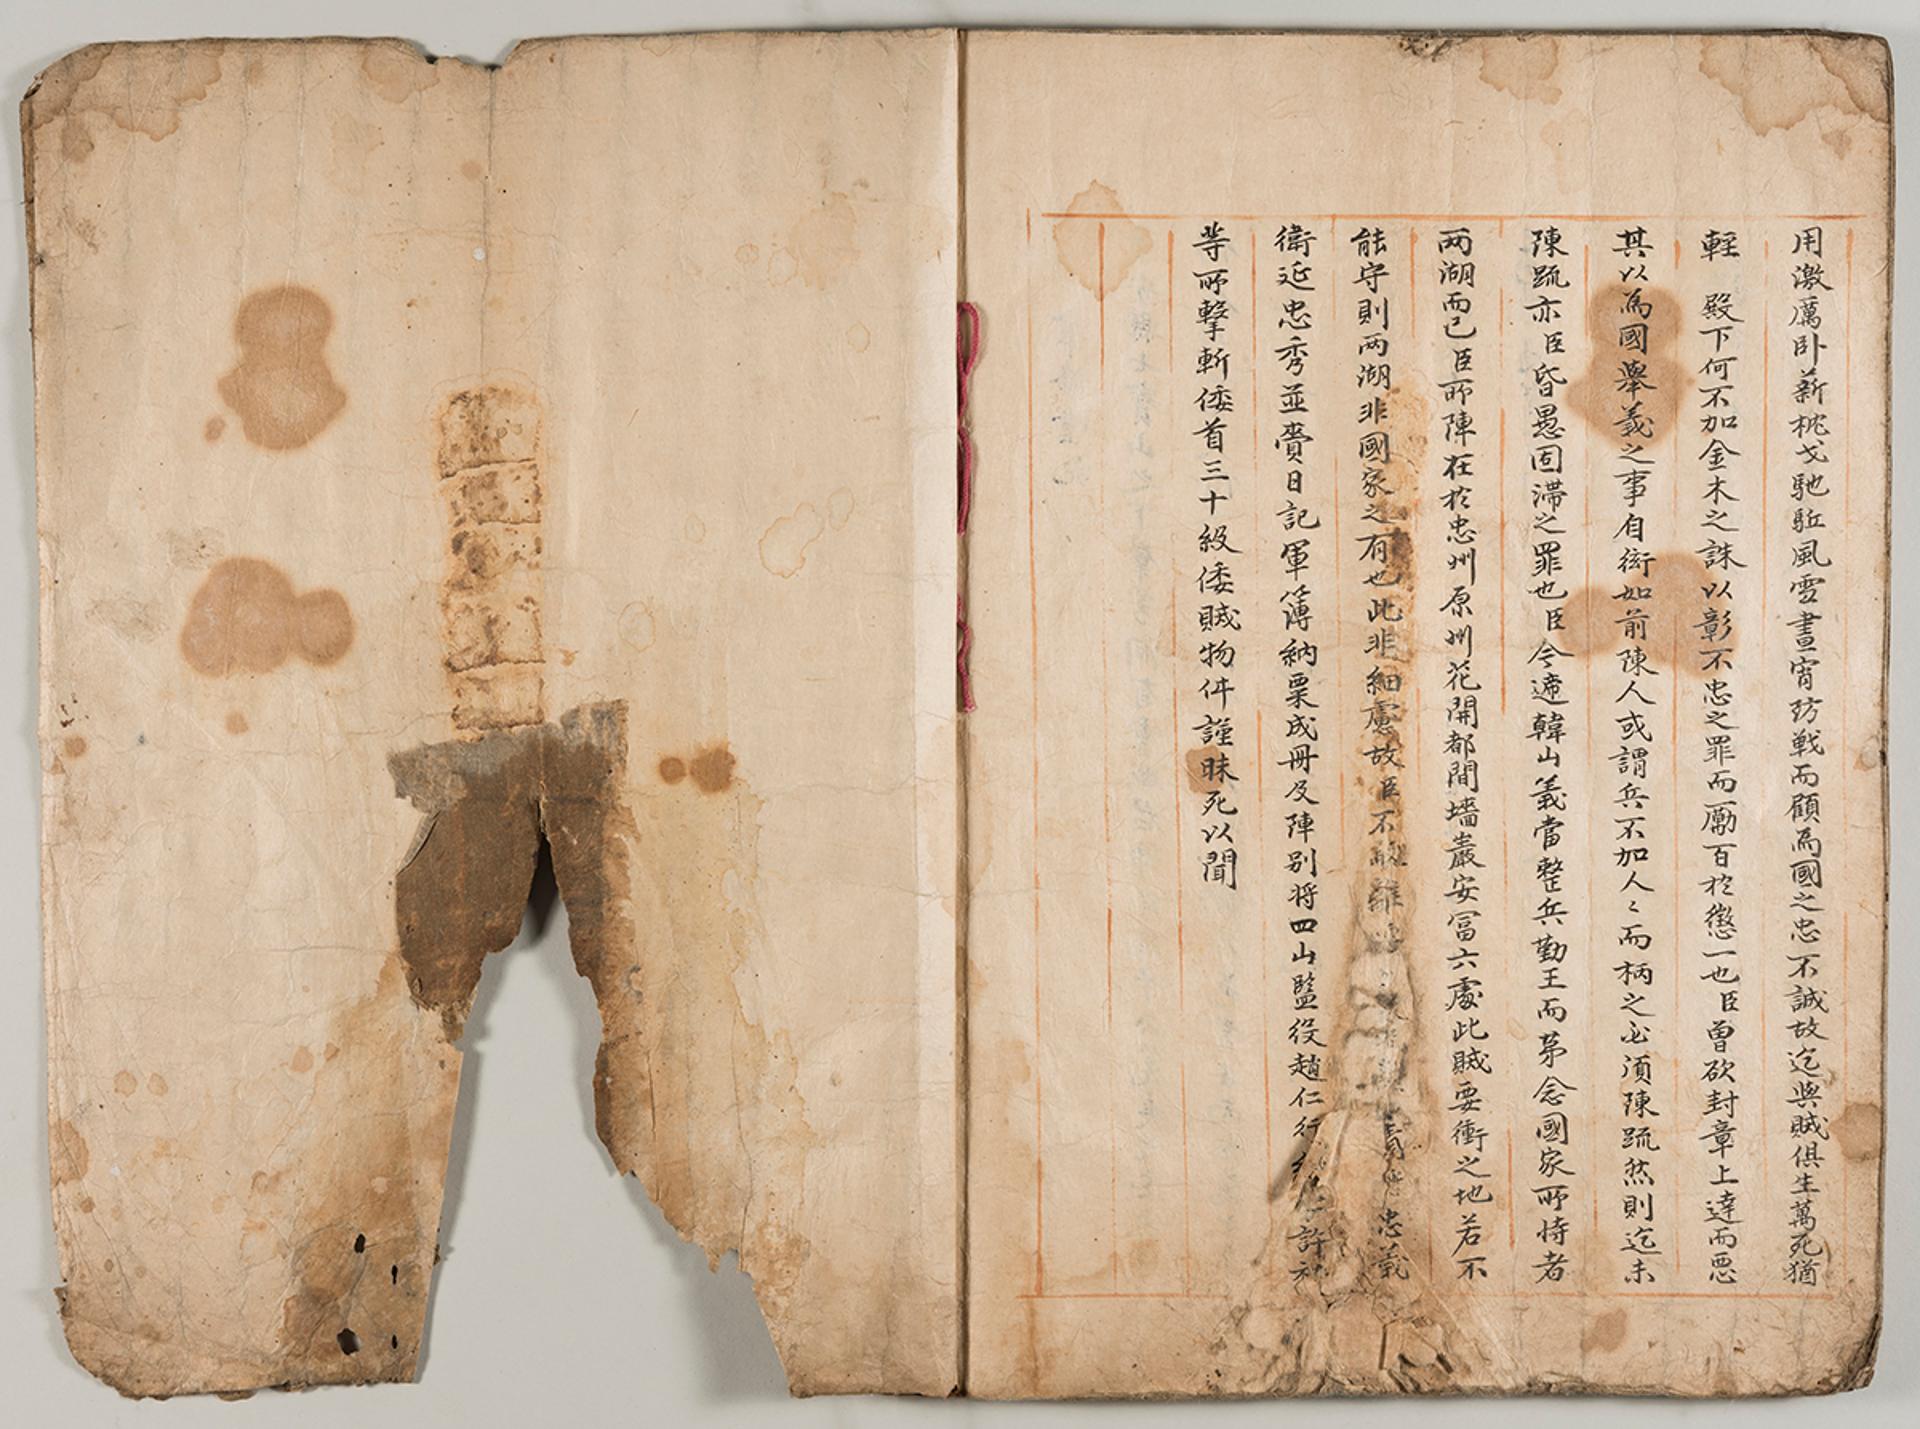 用激厲卧薪枕戈馳駈風雪晝宵防戦而顧為國之忠不誠故迄與賊俱生萬死猶
輕　殿下何不加金木之誅以彰不忠之罪而勵百於懲一也臣曽欲封章上達而悪
其以為國舉義之事自衒如前陳人或謂兵不加人〻而柄之必湏陳䟽然則迄未
陳䟽亦臣昏愚固滯之罪也臣今遞韓山義當整兵勤王而苐念國家所恃者
两湖而已臣所陣在於忠州原州花開都間墻巖安冨六處此賊要衝之地若不
能守則两湖非國家之有也此非細慮故臣不 雖 忠義
衛延忠秀並賫日記軍簿納粟成冊及陣别将四山監役趙仁行 許
等所擊斬倭首三十級倭賊物件謹昧死以聞